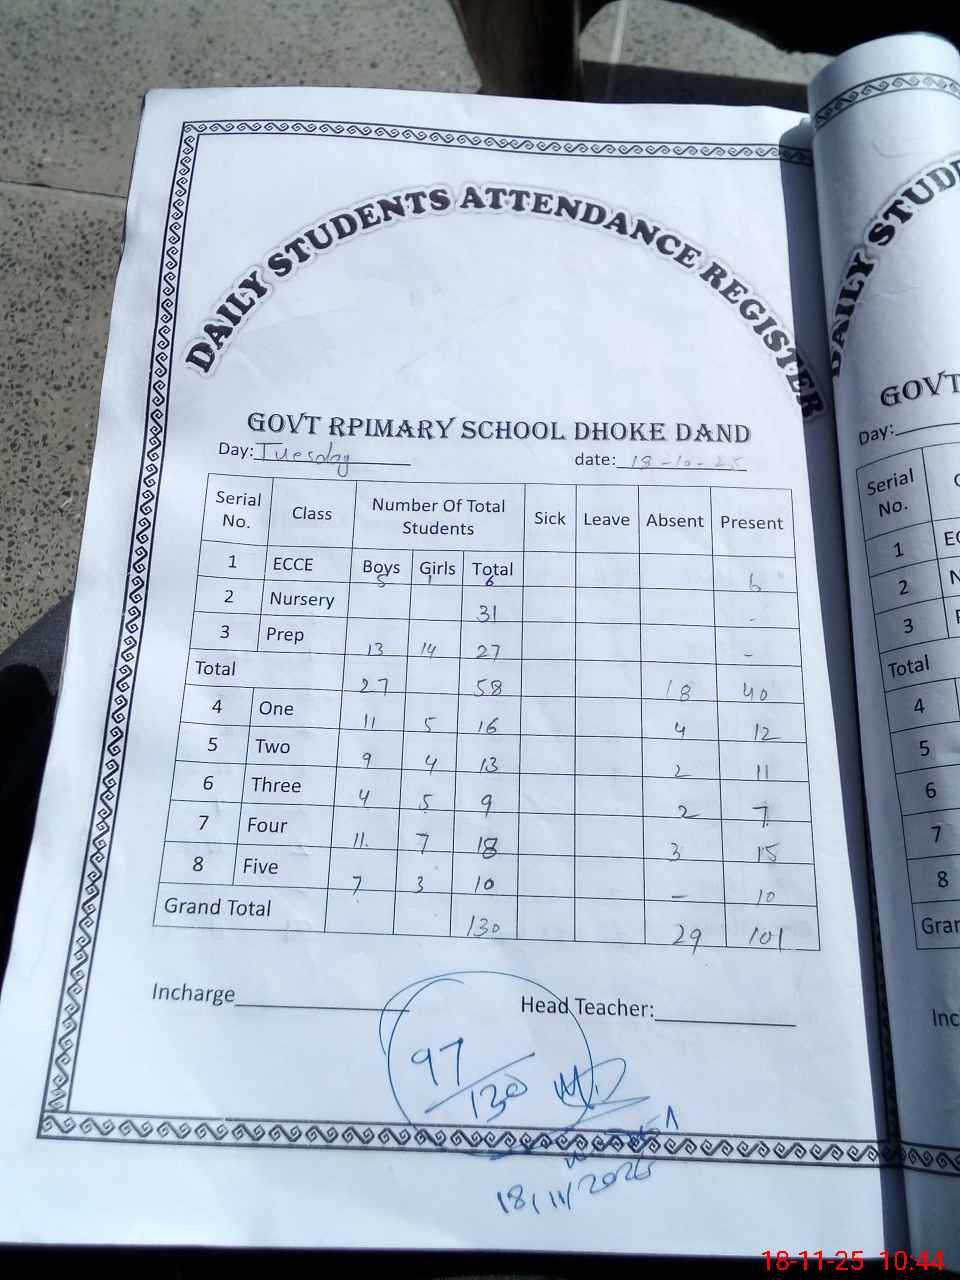 DAILY STUDENTS ATTENDANCE REGISTER
GOVT RPIMARY SCHOOL DHOKE DAND
Day: Tuesday date: 18-10-25
Serial No. Class Number Of Total Students Sick Leave Absent Present
Boys Girls Total
1 ECCE 5 1 6 6
2 Nursery 31 -
3 Prep 13 14 27 -
Total 27 58 18 40
4 One 11 5 16 4 12
5 Two 9 4 13 2 11
6 Three 4 5 9 2 7
7 Four 11 7 18 3 15
8 Five 7 3 10 - 10
Grand Total 130 29 101
Incharge Head Teacher:
97/130
18/11/2025
DAILY STUD
GOVT
Day:
Serial No.
1 EC
2 N
3
Total
4
5
6
7
8
Gran
Inc
18-11-25 10:44